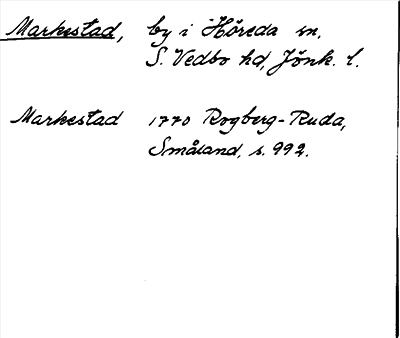 Markestad, by i Höreda sn,
S. Vedbo hd, Jönk. l.
Markestad 1770 Rogberg-Ruda,
Småland, s. 992.